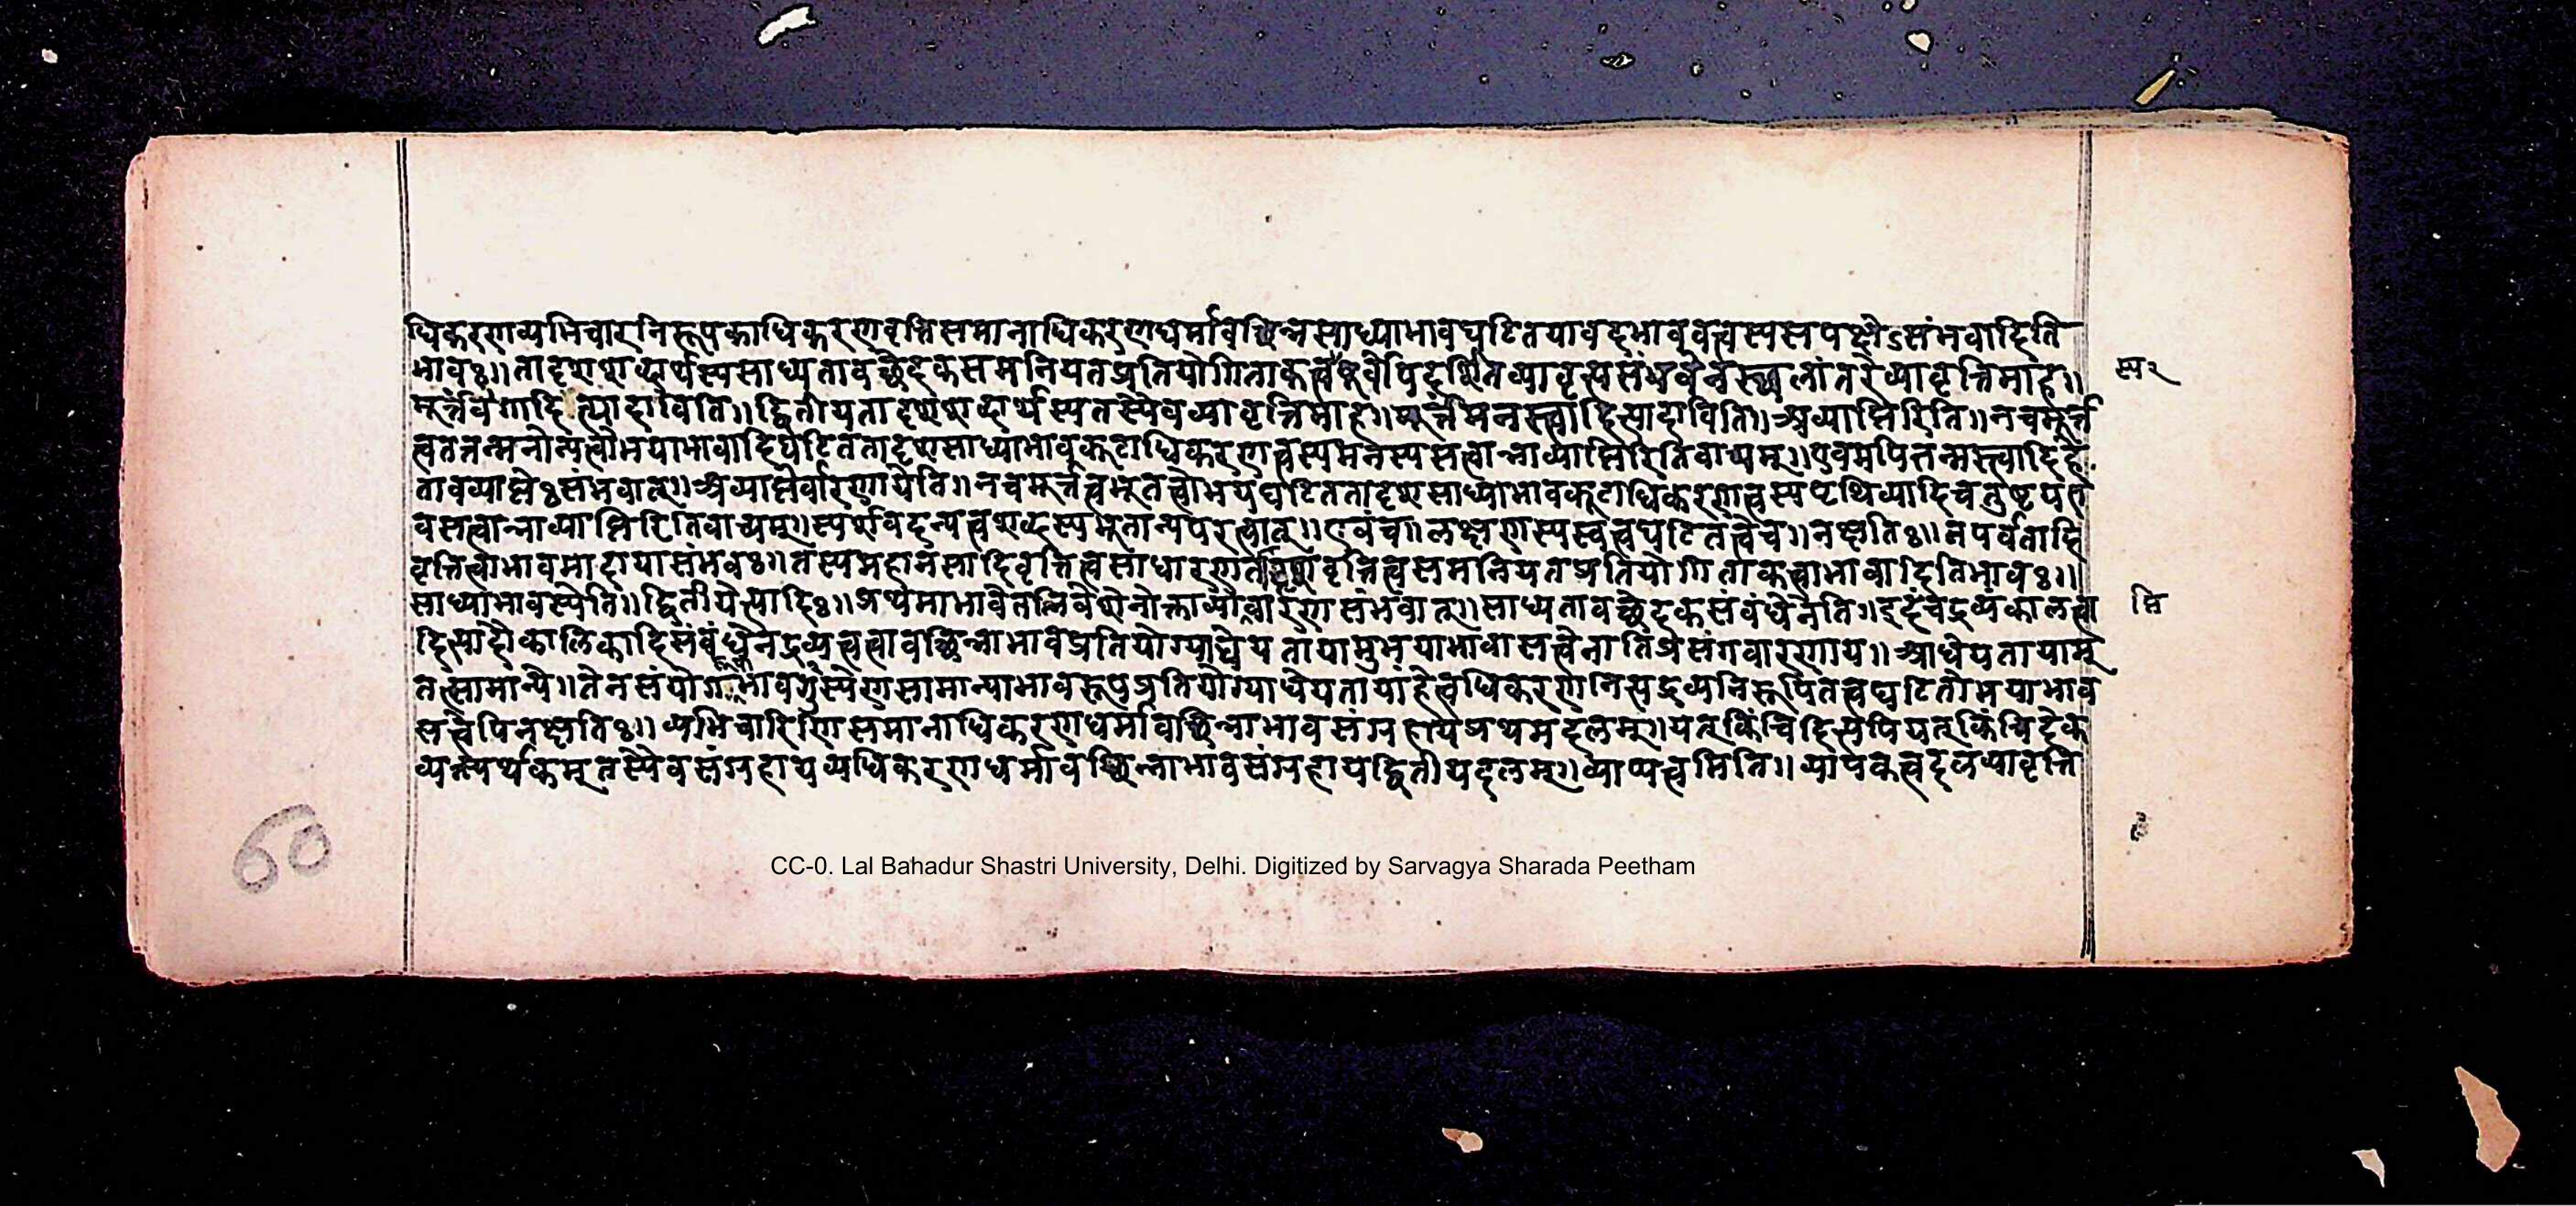 धिकरणव्यभिचारनिरूपकाधिकरणवृत्तिसमानाधिकरणधर्मावच्छिन्नसाध्याभावघटितयावदभाववत्त्वस्यसपक्षेऽसंभवादिति
भावः॥तादृशशब्दार्थस्यसाध्यतावच्छेदकसमनियतप्रतियोगिताकत्व व्यावृत्त्यसंभवेन स्थलांतरेव्यावृत्तिमाह॥
स्पर
मूर्त्त त्यादाविति॥द्वितीयतादृशशब्दार्थस्यतस्यैवव्यावृत्तिमाह॥मूर्त्तमनस्त्वादित्यादाविति॥अव्याप्तिरिति॥नचमूर्त्त
त्वतत्तन्मनोन्यत्वोभयाभावादिघटिततादृशसाध्याभावकूटाधिकरणत्वस्यमनस्यसत्वान्नाव्याप्तिरितिवाच्यम्॥एवमपितन्मस्त्वादिहे
तावव्याप्तेःसंभवात्॥अव्याप्तेर्वारणायेति॥नचमूर्त्तत्वभूतत्वोभयघटिततादृशसाध्याभावकूटाधिकरणत्वस्यपृथिव्यादिचतुष्टयए
वसत्वान्नाव्याप्तिरितिवाच्यम्॥स्पर्शवदन्यत्वशब्दस्यभूतान्यपरत्वात्॥एवंच॥लक्षणस्यस्वत्वघटितत्वेच॥नक्षतिः॥नपर्वतादि
वृत्तित्वाभावमादायासंभवः॥तस्यमहानसादिवृत्तित्वसाधारण वृत्तित्वसमनियतप्रतियोगिताकत्वाभावादितिभावः॥
साध्याभावस्येति॥द्वितीयेत्यादिः॥प्रथमाभावेतन्निवेशेनोक्ताव्या वारणासंभवात्॥साध्यतावच्छेदकसंबंधेनेति॥इदंचद्रव्यंकालत्वा
प्ति
दित्यादौकालिकादिसंबंधेनद्रव्यत्वत्वावच्छिन्नाभावेप्रतियोग्याधेयतायामुभयाभावासत्त्वेनातिप्रसंगवारणाय॥आधेयतायाम्
तत्सामान्ये॥तेनसंयोग सामान्याभावरूपप्रतियोग्याधेयतायांहेत्वधिकरणनित्यद्रव्यनिरूपितत्वघटितोभयाभाव
सत्त्वेपिनक्षतिः॥व्यभिचारिणिसमानाधिकरणधर्मावच्छिन्नाभावसंग्रहायप्रथमदलम्॥यत्किंचिदित्यपियत्किंचिदेक
व्यक्त्यर्थकम्तस्यैवसंग्रहायव्यधिकरणधर्मावच्छिन्नाभावसंग्रहायद्वितीयदलम्॥व्याप्यत्वमिति॥व्यापकत्वदलव्यावृत्ति
60
CC-0. Lal Bahadur Shastri University, Delhi. Digitized by Sarvagya Sharada Peetham